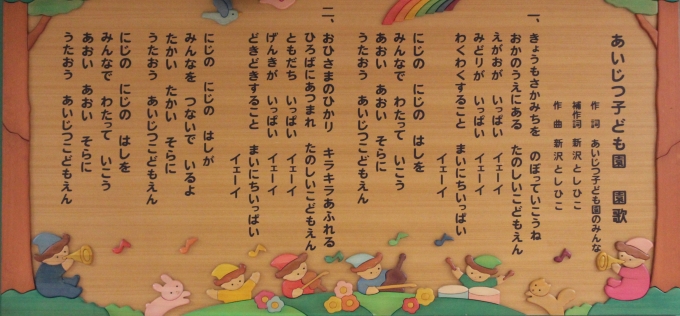 あいじつ子ども園　園歌
作　詞　あいじつ子ども園のみんな
補作詞　新沢としひこ
作　曲　新沢としひこ
一、きょうもさかみちを　のぼっていこうね
おかのうえにある　たのしいこどもえん
えがおが　いっぱい　イェーイ
みどりが　いっぱい　イェーイ
わくわくすること　まいにちいっぱい
イェーイ
にじの　にじの　はしを
みんなで　わたって　いこう
あおい　あおい　そらに
うたおう　あいじつこどもえん
二、おひさまのひかり　キラキラあふれる
ひろばにあつまれ　たのしいこどもえん
ともだち　いっぱい　イェーイ
げんきが　いっぱい　イェーイ
どきどきすること　まいにちいっぱい
イェーイ
にじの　にじの　はしが
みんなを　つないで　いるよ
たかい　たかい　そらに
うたおう　あいじつこどもえん
にじの　にじの　はしを
みんなで　わたって　いこう
あおい　あおい　そらに
うたおう　あいじつこどもえん